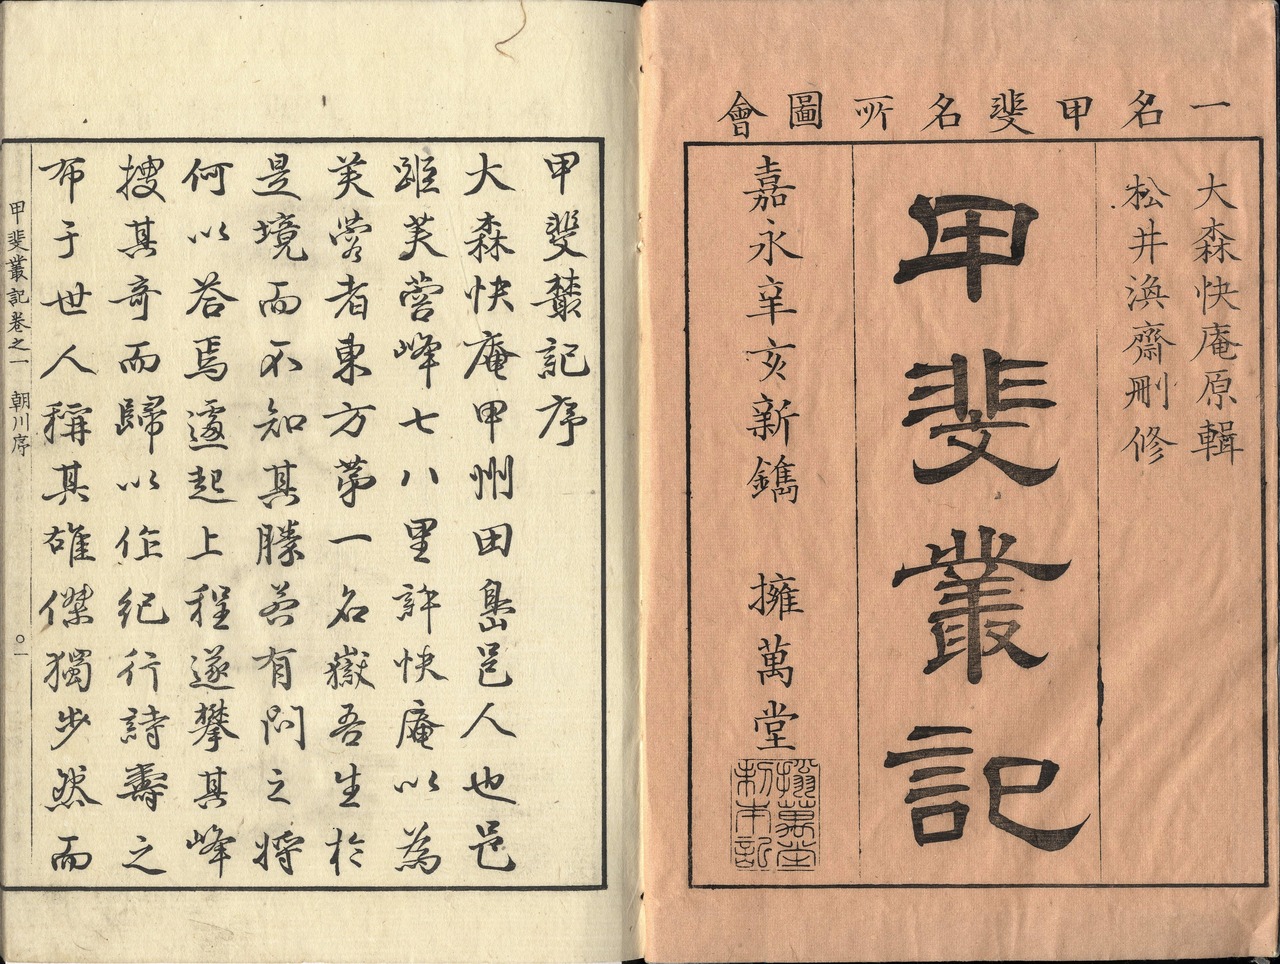 一名甲斐名所圖會
大森快庵原輯
松井渙齋刪修
甲斐叢記
嘉永辛亥新鐫 擁萬堂
擁萬堂製本記
甲斐叢記序
大森快庵甲州田嶌邑人也邑
距芙蓉峰七八里許快庵以為
芙蓉者東方第一名嶽吾生於
是境而不知其勝若有問之將
何以荅焉遽起上程遂攀其峰
搜其奇而歸以作紀行詩壽之
布于世人稱其雄傑獨步然而
甲斐叢記卷之一 朝川序 〇一